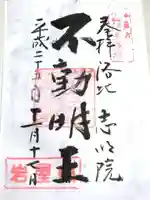 奉拝 洛北 志明院
不動明王
平成二十五年十一月十七日
岩屋山